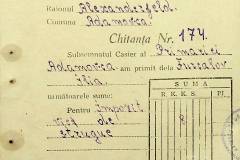 Raionul Alexanderfeld.
Comuna Adamovca
Chitanța Nr. 174.
Subsemnatul Casier al Primariei
Adamovca am primit dela Fursalov
Ilia
următoarele sume:
SUMA
R. K. S. R. PL.
Pentru impozit
viei de
strugure